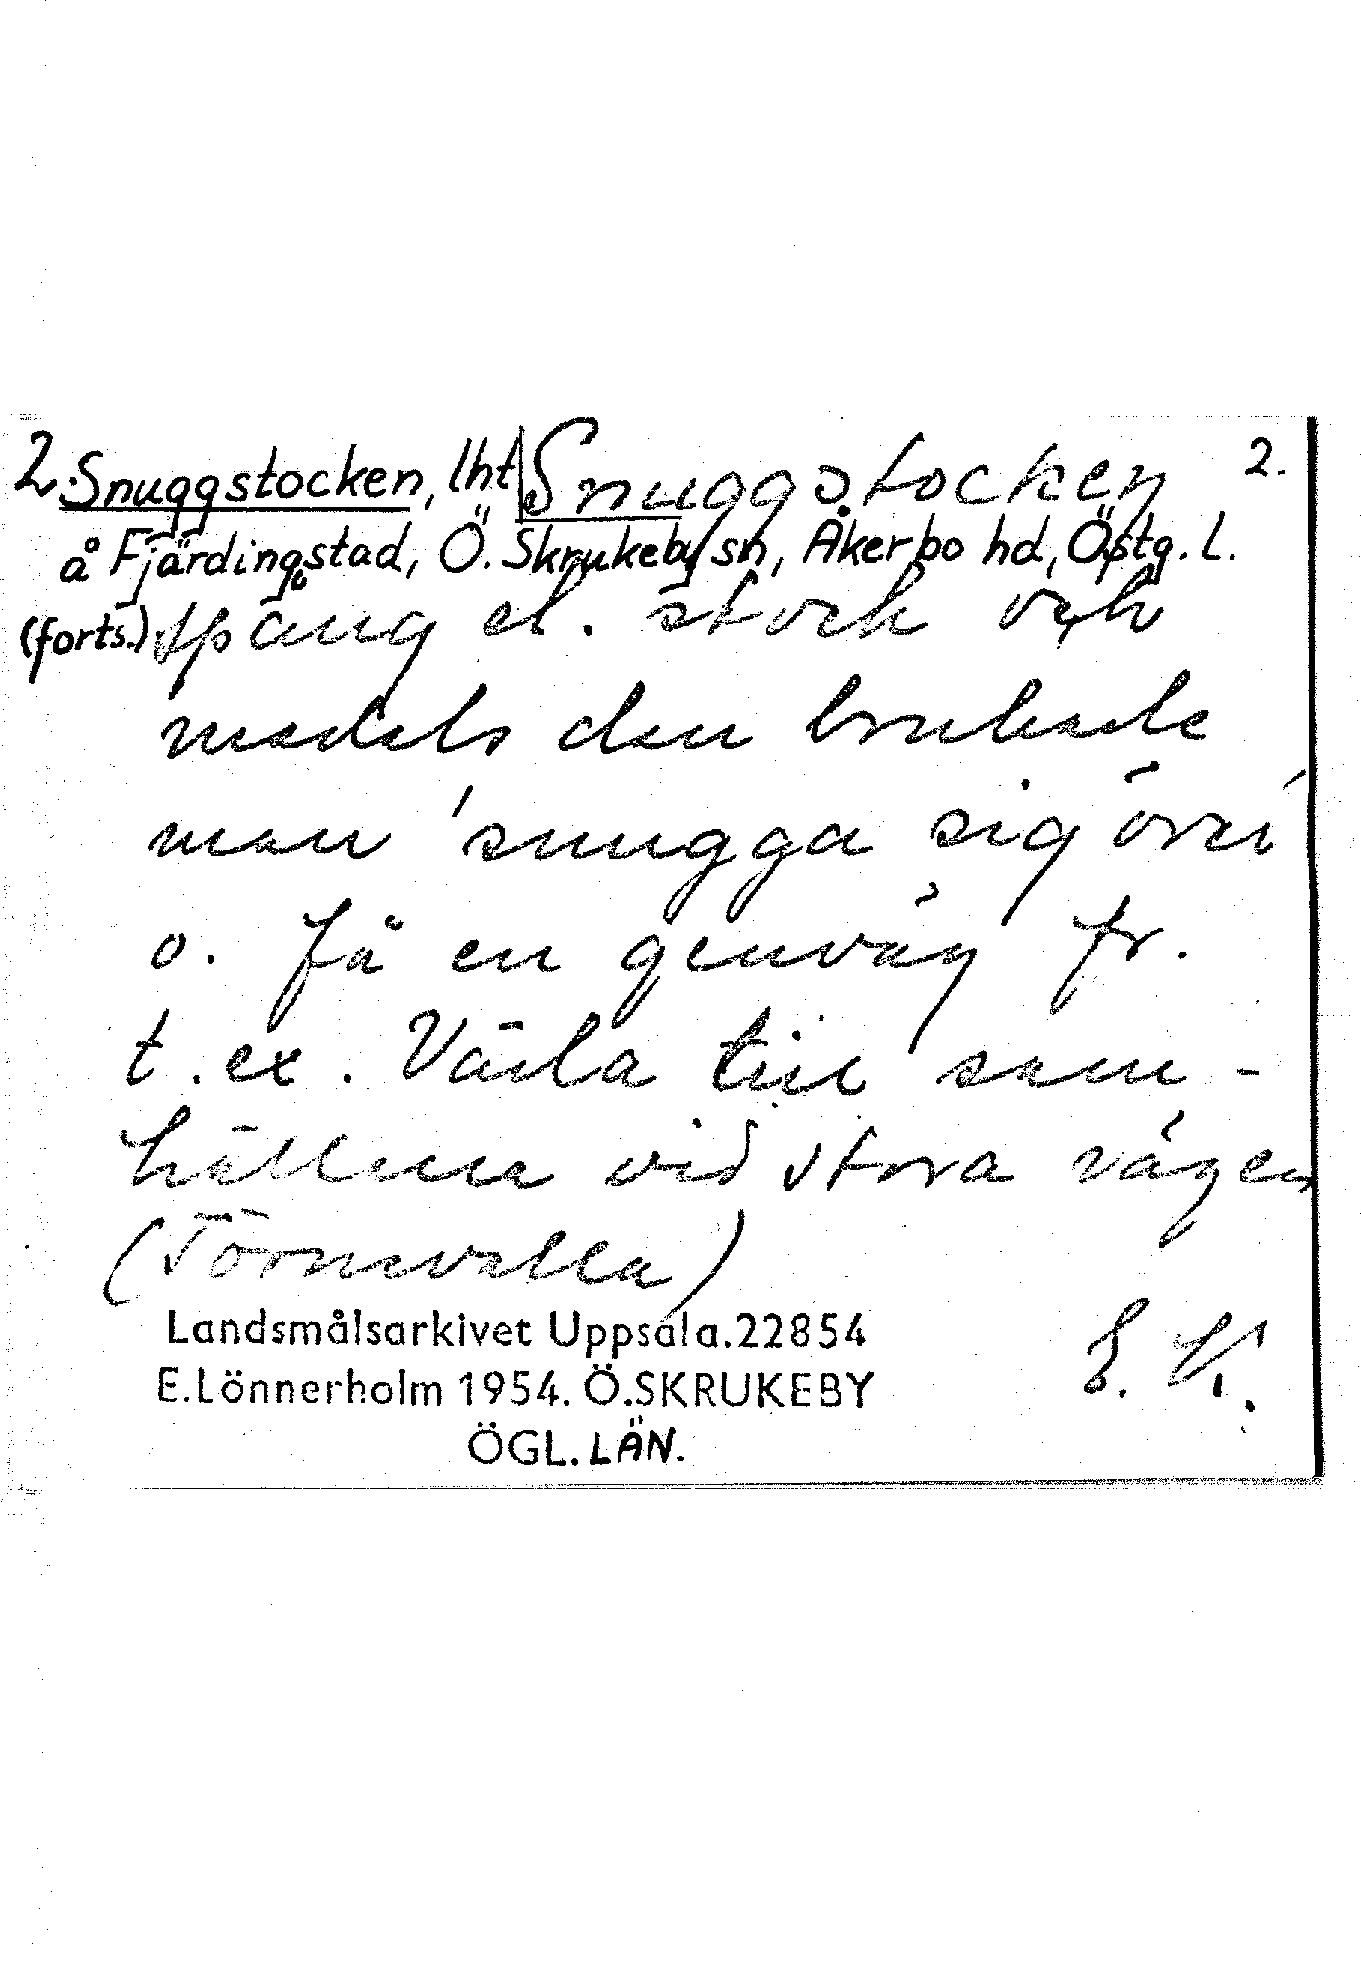 2. Snuggstocken, lht Snuggstocken 2.
å Fjärdingstad, Ö. Skrukeby sn, Åkerbo hd, Östg. l.
(forts.) spång el. stock och
medels den brukade
man 'snugga sig över'
o. få en genväg fr.
t. ex. Vårla till sam-
hällena vid stora vägen
(Törnevalla)
Landsmålsarkivet Uppsala.22854
E.Lönnerholm 1954. Ö.SKRUKEBY
ÖGL. LÄN.